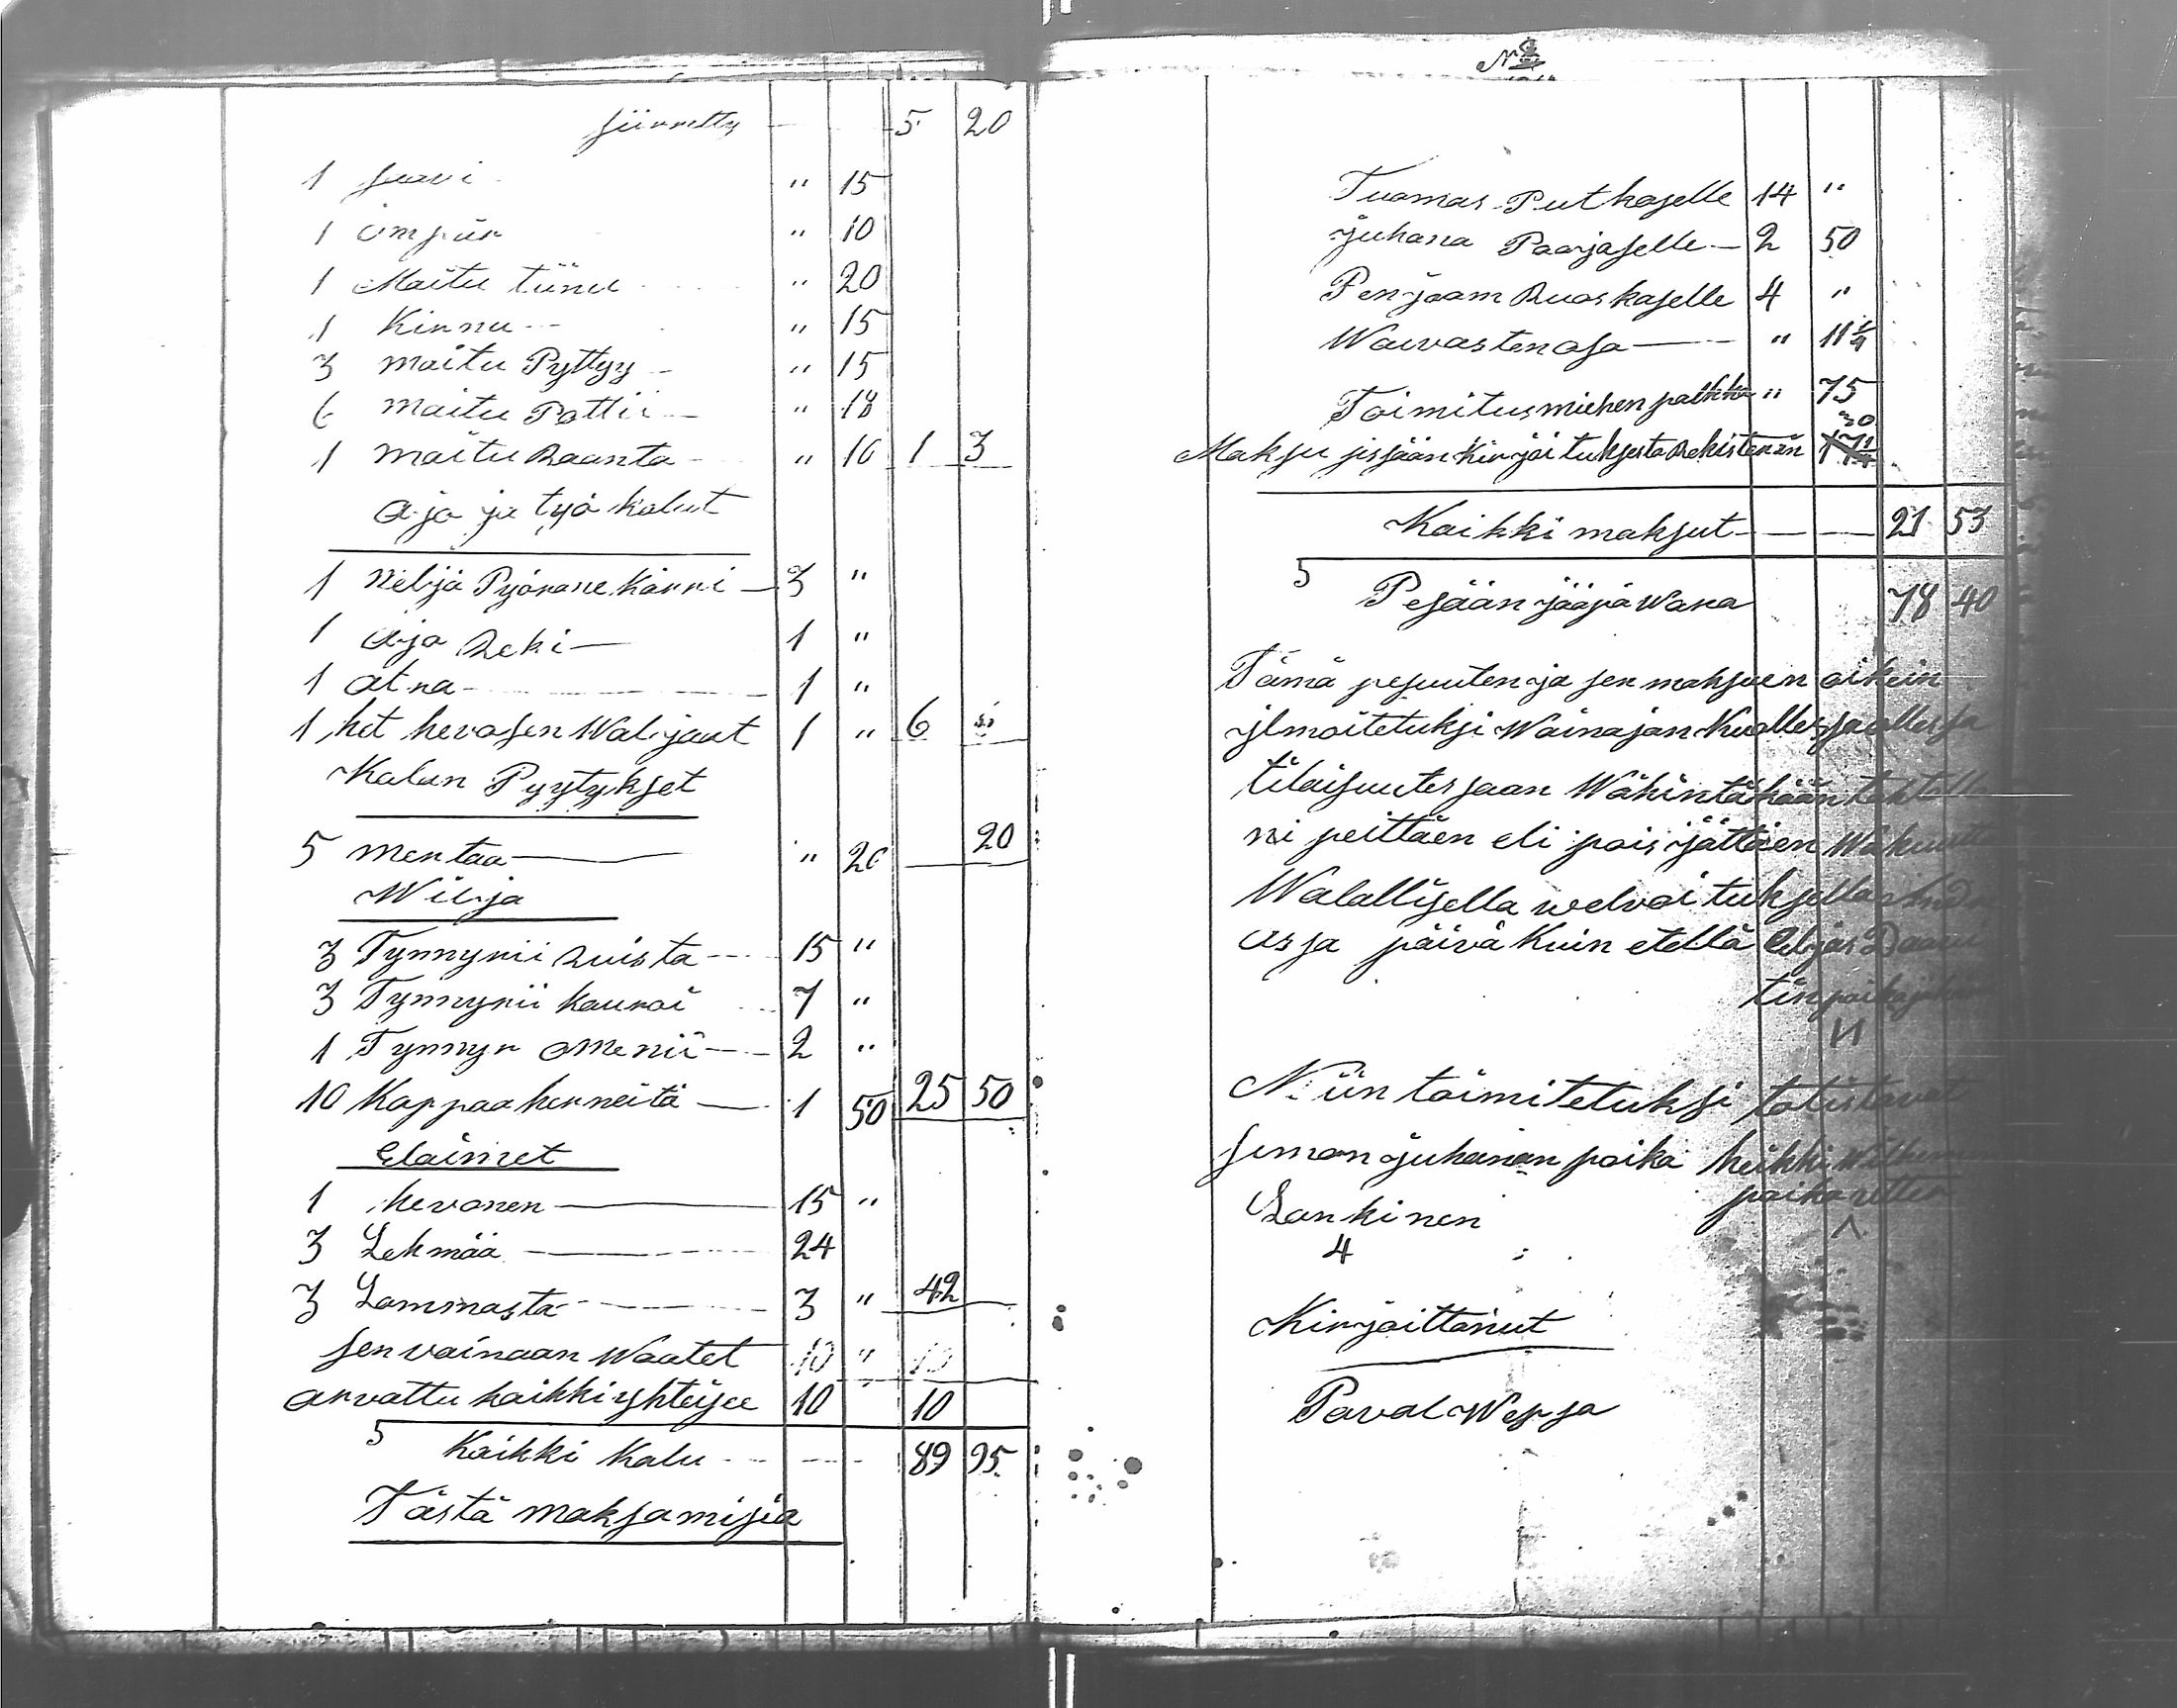 siirretty 5 20
1 saavi " 15
1 ämpär " 10
1 Maitu tiinu " 20
1 Kirnu " 15
3 maitu Pyttyy " 15
6 maitu Pattii " 18
1 maitu Raanta " 10 1 3
Ajo ja työ kalut
1 neljä Pyöräne Kärri 3 "
1 Ajo Reki 1 "
1 atra 1 "
1 het hevosen Waljaat 1 " 6 "
Kalan Pyytykset
5 mertaa " 20 20
Wilja
3 Tynnyrii Ruista 15 "
3 Tynnyrii kauroi 7 "
1 Tynnyr omenii 2 "
10 Kappaa herneitä 1 50 25 50
Eläimet
1 hevonen 15 "
3 Lehmää 24
3 Lammasta 3 " 42
sen vainaan Waatet 10 " 10
arvattu kaikki yhteisee 10 10
5 Kaikki Kalu 89 95
Tästä maksamisia
No
Tuomas Putkaselle 14 "
Juhana Paajaselle 2 50
Penjaam Ruoskaselle 4 "
Waivasten osa " 11 1/4
Toimitusmiehen palkka " 75
20
Maksu sissään kirjoituksesta Rekisteriin 17 1/4
Kaikki maksut 21 53
5 Pesään jääpä Wara 78 40
Tämä pesuuten ja sen maksuen oikein
ilmoitetuksi Wainajan Kuollessa ollessa
tilaisuutessaan Wähintäkään tahtalla
ni peittäen eli pois jättäen
Walallisella welvoituksella
assa päivä kuin etellä Eljas Daavi
tin poika
Niin toimitetuksi totistavat
Simon Juhanan poika heikki
Lankinen poika
4
Kirjoittanut
Paval Wepsa